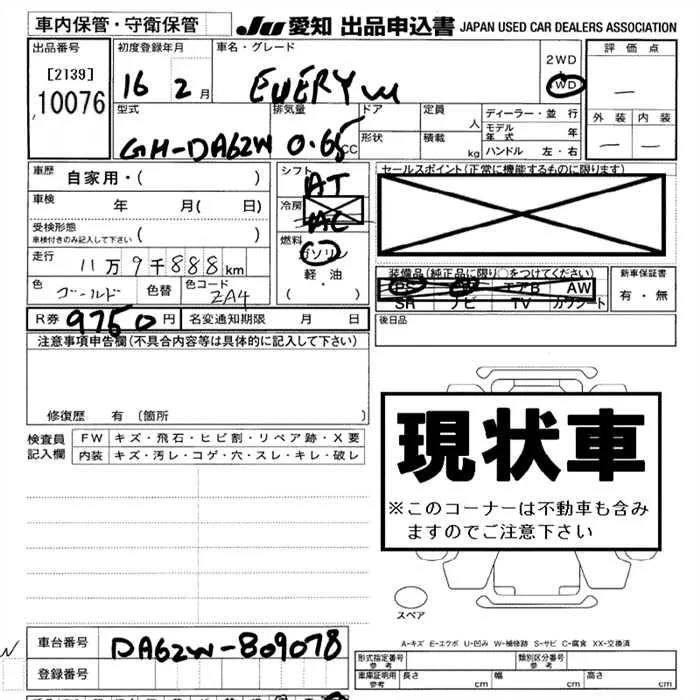 車内保管・守衛保管 JU 愛知 出品申込書 JAPAN USED CAR DEALERS ASSOCIATION
出品番号 初度登録年月 車名・グレード 2WD 評価点
[2139] 16 2月 EVERY W 4WD ー
10076
型式 排気量 ドア 定員 人 ディーラー・並行 外装 内装
GH-DA62W 0.65 CC 形状 積載 kg モデル年式 年 ー ー
ハンドル 左・右
車歴 自家用・( ) シフト AT セールスポイント(正常に機能するものに限ります)
車検 年 月( 日) 冷房 AC
受検形態 ( )
車検付きのみ記入して下さい
燃料 ガソリン
走行 11万9千888km 軽・油 装備品(純正品に限り○をつけてください) 新車保証書
色 ゴールド 色替 色コード ZA4 (・) PS エアB AW 有・無
SR ナビ TV カワシート
R券 9750円 名変通知期限 月 日 後日品
注意事項申告欄(不具合内容等は具体的に記入して下さい)
修復歴 有(箇所 )
現状車
※このコーナーは不動車も含み
ますのでご注意下さい
検査員 FW キズ・飛石・ヒビ割・リペア跡・X要
記入欄 内装 キズ・汚レ・コゲ・穴・スレ・キレ・破レ
スペア
A-キズ E-エクボ U-凹み W-補修跡 S-サビ C-腐食 XX-交換済
車台番号 DA62W-809078
形式指定番号 参考 類別区分番号 参考
登録番号 車庫証明用 参考 長さ cm 幅 cm 高さ cm